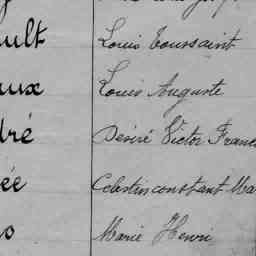 ult Louis Toussaint
aux Louis Auguste
dré Désiré Victor Franc
ée Celestin constant Ma
o Marie Henri